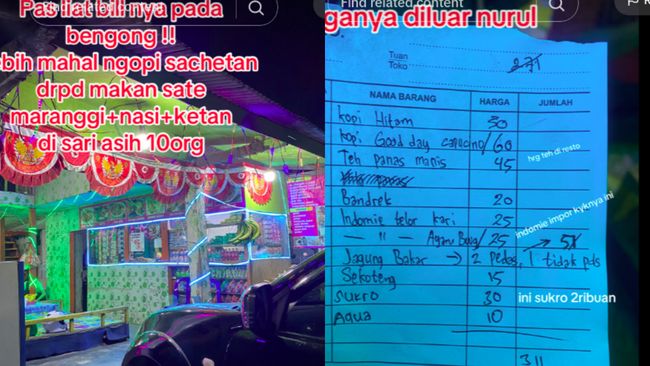 Find related content
Pas liat bill nya pada
bengong !!
bih mahal ngopi sachetan
drpd makan sate
maranggi+nasi+ketan
di sari asih 10org
Find related content
ganya diluar nurul
Tuan
Toko
271
NAMA BARANG HARGA JUMLAH
kopi Hitam 30
kopi Good day capucino/ 60
hrg teh di resto
Teh panas manis 45
Bandrek 20
Indomie telor kari 25
indomie impor kyknya ini
— " — Ayam Bwg/ 25 → 5x
Jagung Bakar → 2 Pedas, 1 tidak pds
Sekoteng 15
Sukro 30
ini sukro 2ribuan
Aqua 10
311